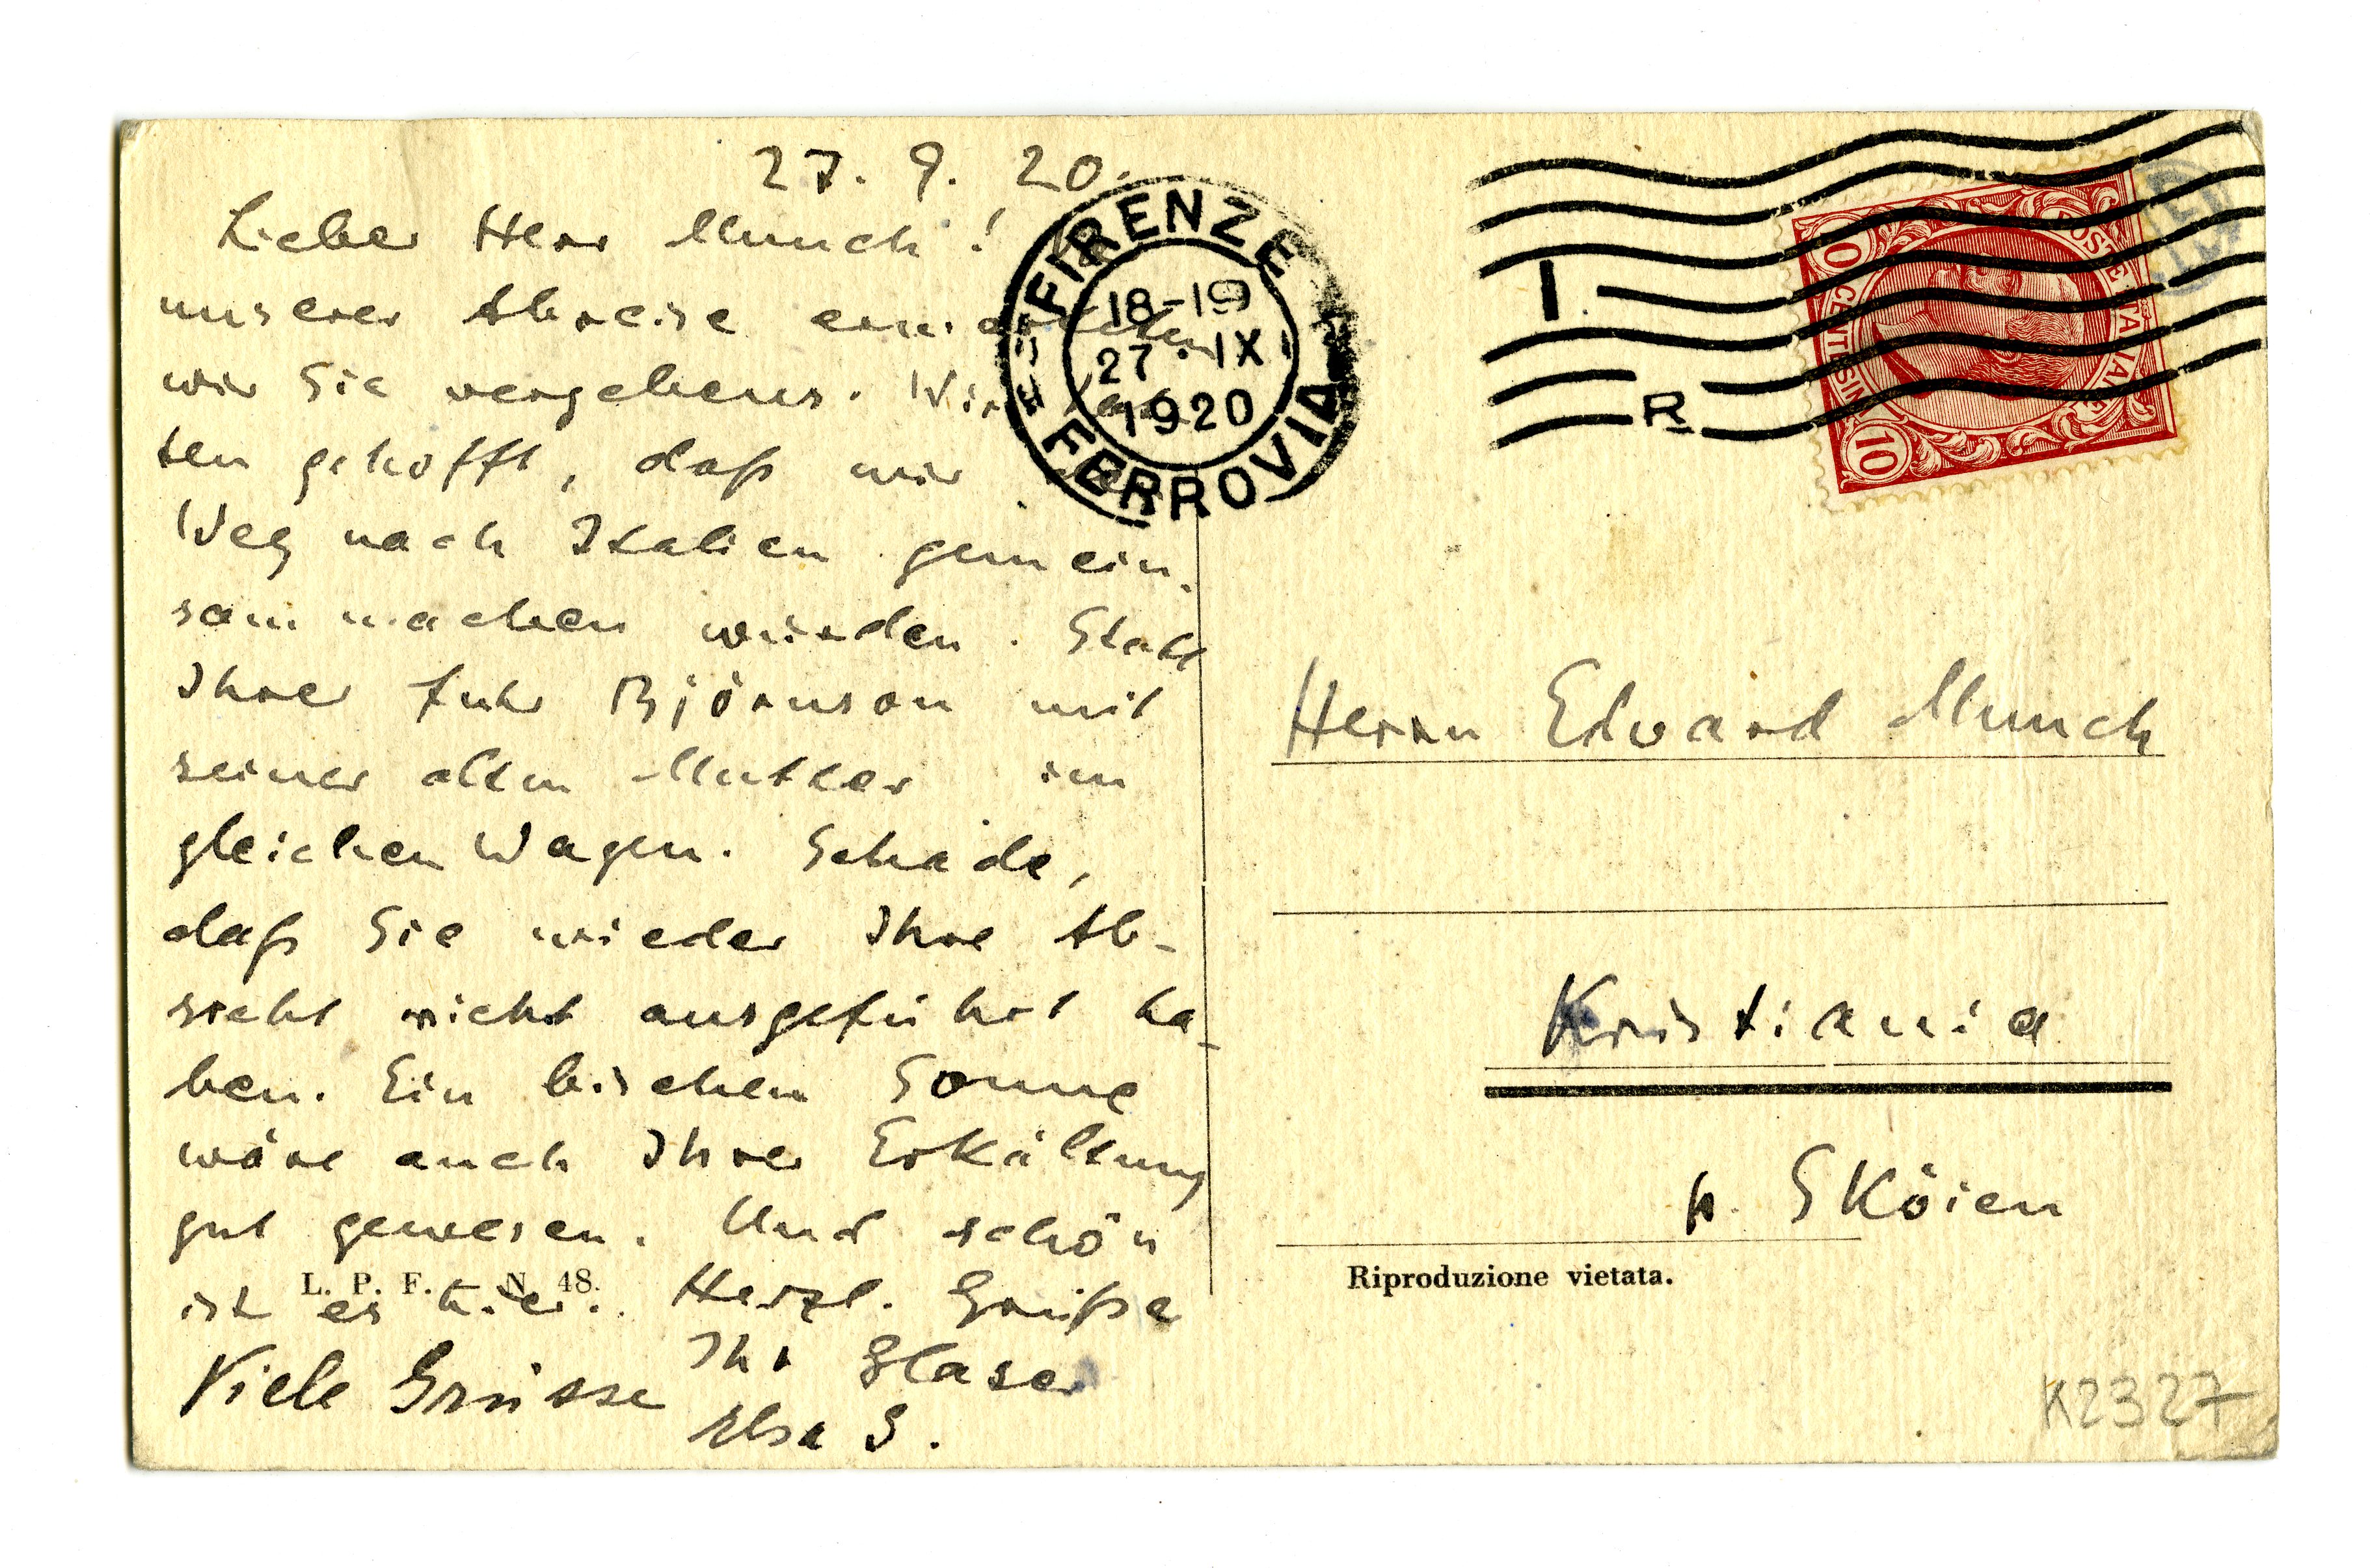 27. 9. 20.
Lieber Herr Munch!
unserer Abreise erwarteten
wir Sie vergebens. Wir hat
ten gehofft, daß wir den
Weg nach Italien gemein-
sam machen würden. Statt
Ihrer fuhr Björnson mit
seiner alten Mutter im
gleichen Wagen. Schade,
daß Sie wieder Ihre Ab-
sicht nicht ausgeführt ha-
ben. Ein bischen Sonne
wäre auch Ihrer Erkältung
gut gewesen. Und schön
ist es hier. Herzl. Grüße
Ihr Glaser
Viele Grüsse
Elsa G.
L. P. F. - N. 48.
FIRENZE
18-19
27 · IX
1920
FERROVIA
I.
R
POSTE ITALIANE
10 CENTESIMI 10
Herrn Edvard Munch
Kristiania
p. Sköien
Riproduzione vietata.
K2327